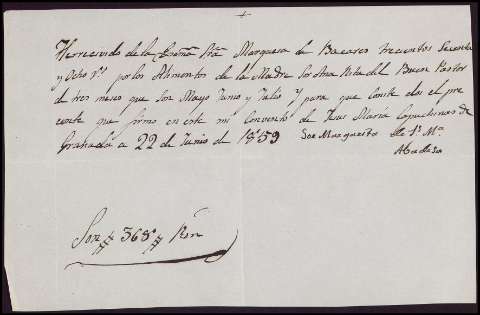 +
Herrecivido de la Exma Sra Marquesa de Bacares trecientos Secenta
y Ocho rs por los Alimentos de la Madre Sor Ana Rita del Buen Pastor
de tres meses que son Mayo Junio y Julio y para que Conste doi el pre
cente que firmo en este mi Convento de Jesus Maria Capuchinas de
Granada a 22 de Junio de 1859 Sor Margarita de Sn Ma
Abadesa
Son # 368 # Rn